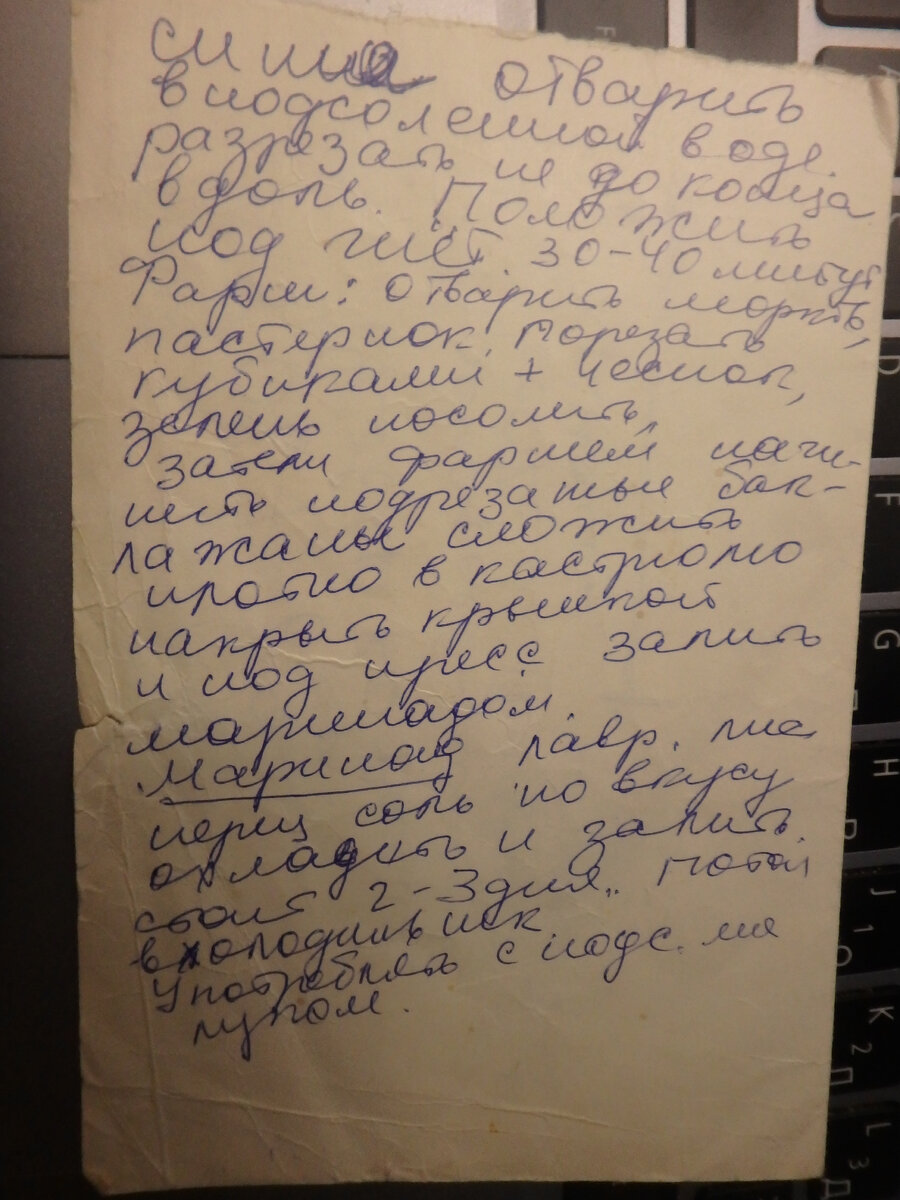 отварить
в подсоленной воде.
разрезать не до конца
вдоль. Положить
под гнёт. 30-40 минут
Фарш: отварить морковь,
пастернок. Порезать
кубиками + чеснок,
зелень посолить,
затем фаршем начи-
нить подрезаные бак-
лажаны сложить
плотно в кастрюлю
накрыть крышкой
и под пресс залить
маринадом.
Маринад лавр. лис
перец соль по вкусу
охладить и залить.
стоит 2-3 дня.. Потом
в холодильник
Употреблять с подс. ма
луком.
F
G
H
J
K
L